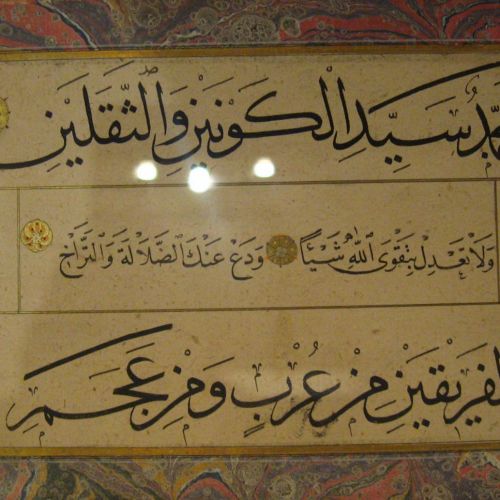 سَيِّدِ الْكَوْنَيْنِ وَالثَّقَلَيْنِ
وَلَا تَعْدِلْ بِتَقْوَى اللهِ شَيْئًا وَدَعْ عَنْكَ الضَّلَالَةَ وَالتَّرَاخِ
الْفَرِيقَيْنِ مِنْ عُرْبٍ وَمِنْ عَجَمِ